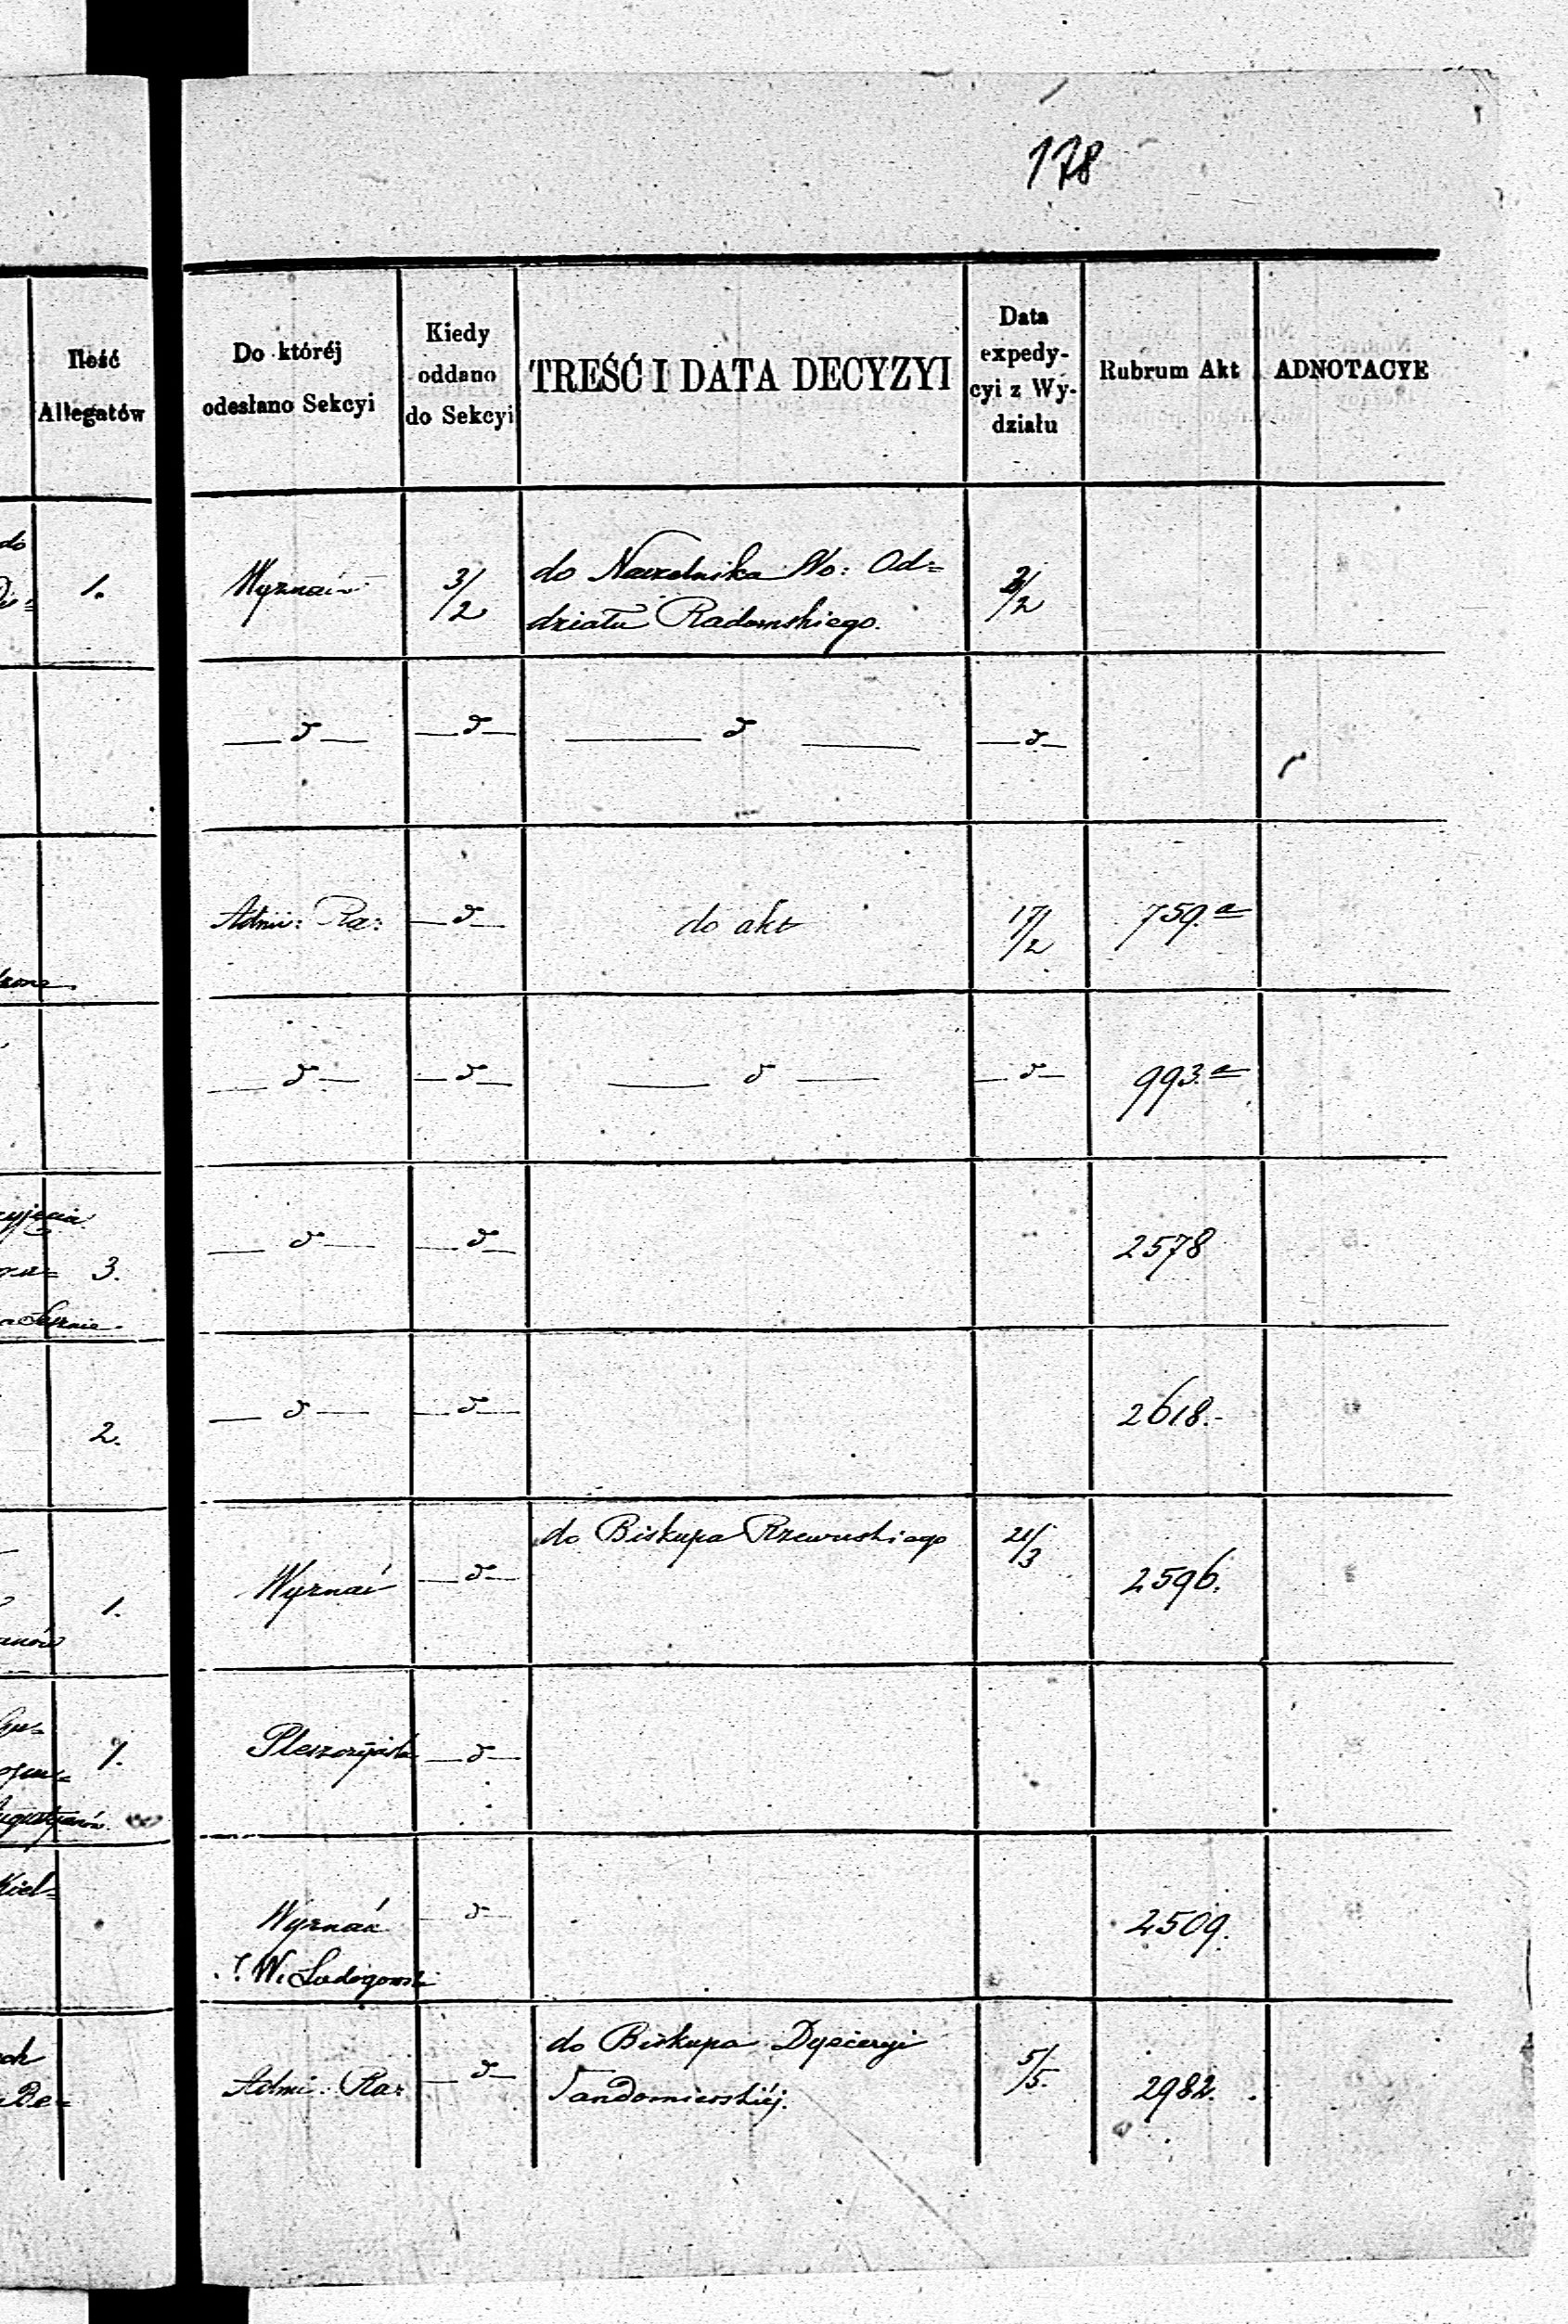 178
Ilość
Allegatów
Do któréj
odesłano Sekcyi
Kiedy
oddano
do Sekcyi
TREŚĆ I DATA DECYZYI
Data
expedy-
cyi z Wy-
działu
Rubrum Akt
ADNOTACYE
do
1.
Wyznań
3/2
do Naczelnika Wo: Od=
działu Radomskiego.
2/2
— d —
— d —
— d —
— d —
Admi: Ra:
— d —
do akt
17/2
759.a
— d —
— d —
— d —
— d —
993.a
3.
— d —
— d —
2578
2.
— d —
— d —
2618.-
1.
Wyznań
— d —
do Biskupa Rzewuskiego
21/3
2596.
— d —
Kiel=
Wyznań
— d —
2509.
Be=
Admi: Ra:
— d —
do Biskupa Dyecezyi
Sandomierskiéj.
5/5.
2982.